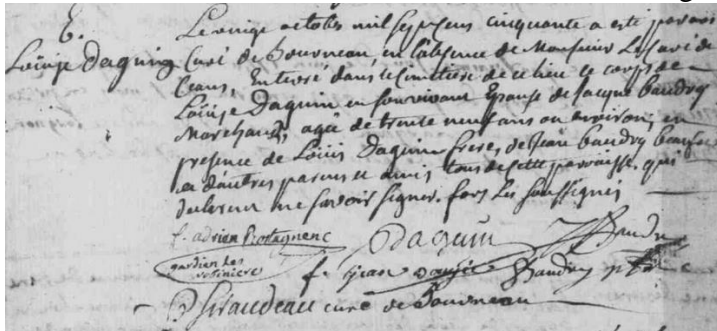 E.
Loüise Daquin
Le onze octobre mil sept cens cinquante a esté par moi
Curé de Bourneau, en l'absence de Monsieur Le Curé de
Ceans, Enterré dans le Cimetiere de ce lieu le corps de
Loüise Daquin en son vivant Epouse de Jacque baudry
Marchand, agée de trente neuf ans ou environ, en
presence de Loüis Daquin frere, de Jean baudry beaufre
et d'autres parens et amis tous de cette parroisse qui
declarent ne savoir signer. fors les soussignés
f. adrien
Daquin
Baudry
gardien des
f. jean
Baudry
Giraudeau curé de Bourneau